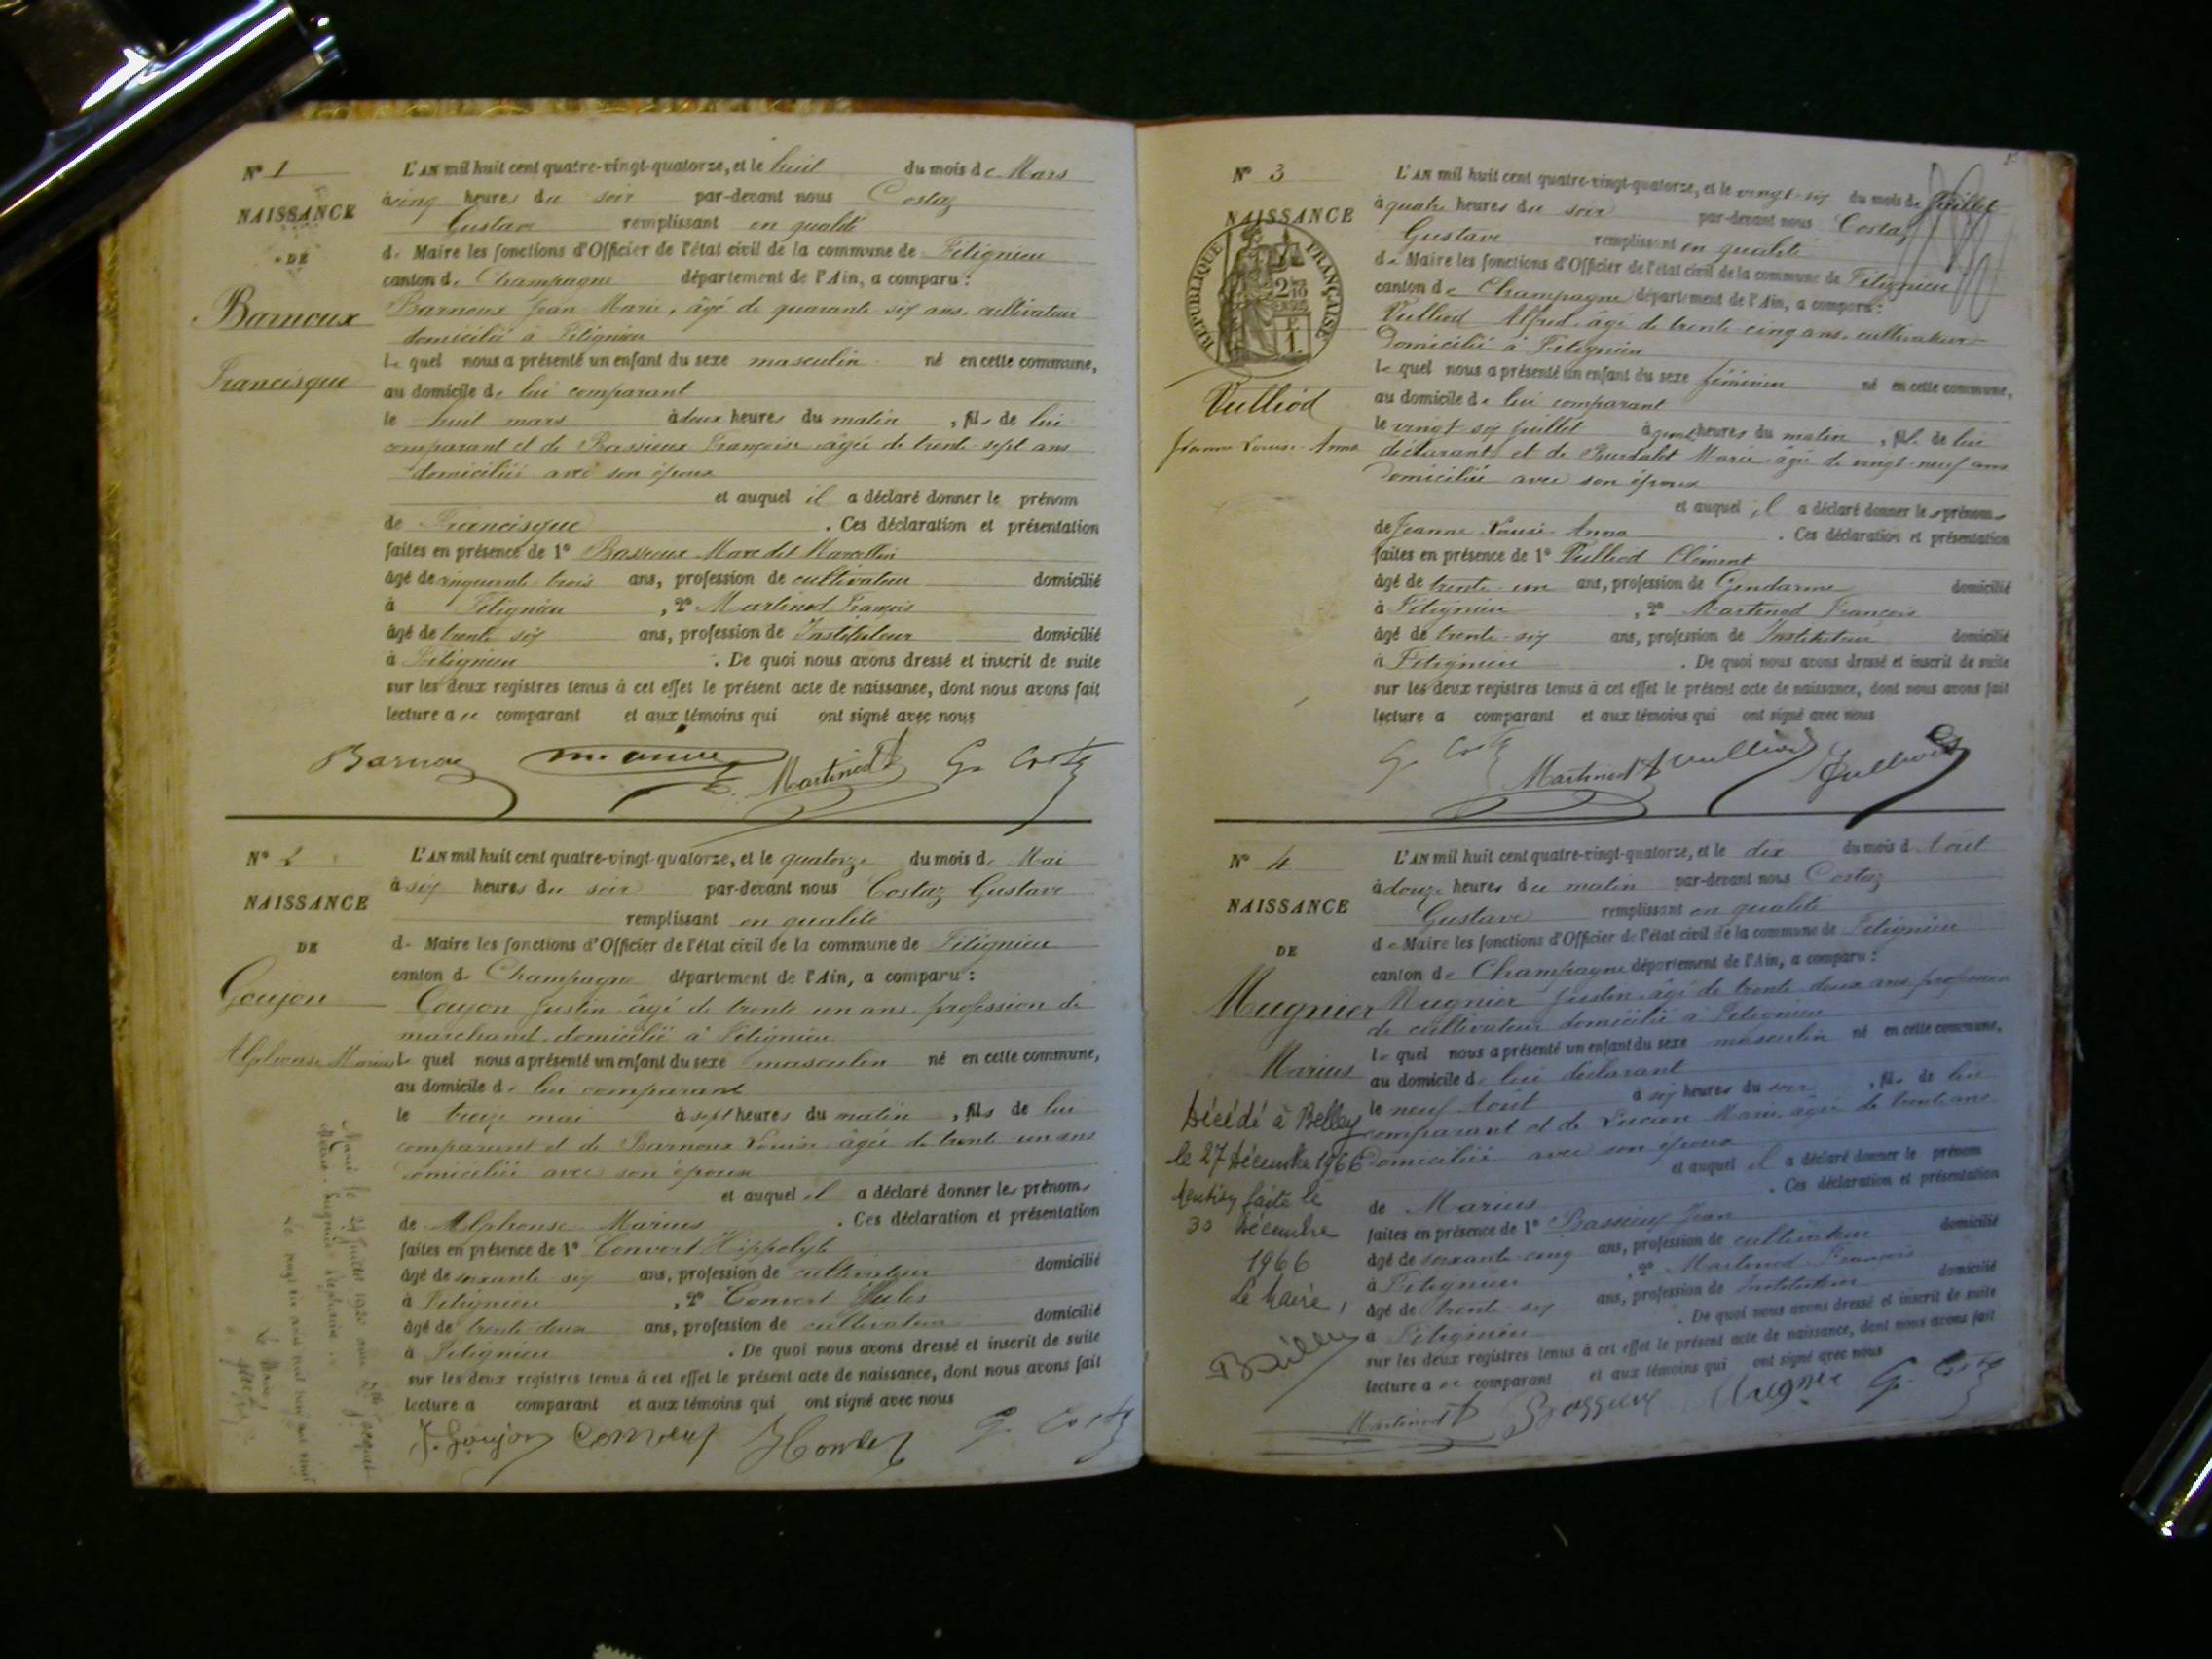 N° 1
NAISSANCE
DE
Barnoux
Francisque
L'AN mil huit cent quatre-vingt-quatorze, et le huit du mois de Mars
à cinq heures du soir par-devant nous Costaz
Gustave remplissant en qualité
de Maire les fonctions d'Officier de l'état civil de la commune de Fitignieu
canton de Champagne département de l'Ain, a comparu :
Barnoux Jean Marie, âgé de quarante six ans, cultivateur
domicilié à Fitignieu
Le quel nous a présenté un enfant du sexe masculin né en cette commune,
au domicile de lui comparant
le huit mars à deux heures du matin, fils de lui
comparant et de Bassieux Françoise âgée de trente-sept ans
domiciliée avec son époux
et auquel il a déclaré donner le prénom
de Francisque. Ces déclaration et présentation
faites en présence de 1° Bassieux Marc dit Marcellin
âgé de cinquante-trois ans, profession de cultivateur domicilié
à Fitignieu, 2° Martinod François
âgé de trente six ans, profession de Instituteur domicilié
à Fitignieu. De quoi nous avons dressé et inscrit de suite
sur les deux registres tenus à cet effet le présent acte de naissance, dont nous avons fait
lecture au comparant et aux témoins qui ont signé avec nous
Barnou Martinod F G. Costaz
N° 2
NAISSANCE
DE
Goujon
Alphonse Marius
L'AN mil huit cent quatre-vingt-quatorze, et le quatorze du mois de Mai
à six heures du soir par-devant nous Costaz Gustave
remplissant en qualité
de Maire les fonctions d'Officier de l'état civil de la commune de Fitignieu
canton de Champagne département de l'Ain, a comparu :
Goujon Justin âgé de trente un ans, profession de
marchand, domicilié à Fitignieu
Le quel nous a présenté un enfant du sexe masculin né en cette commune,
au domicile de lui comparant
le treize mai à sept heures du matin, fils de lui
comparant et de Barnoux Louise âgée de trente-un ans
domiciliée avec son époux
et auquel il a déclaré donner les prénoms
de Alphonse Marius. Ces déclaration et présentation
faites en présence de 1° Convert Hippolyte
âgé de soixante six ans, profession de cultivateur domicilié
à Fitignieu, 2° Convert Jules
âgé de trente-deux ans, profession de cultivateur domicilié
à Fitignieu. De quoi nous avons dressé et inscrit de suite
sur les deux registres tenus à cet effet le présent acte de naissance, dont nous avons fait
lecture a comparant et aux témoins qui ont signé avec nous
J. Goujon Convert G. Costaz
Le Maire
N° 3
NAISSANCE
RÉPUBLIQUE FRANÇAISE
Vulliod
Jeanne Louise Anna
L'AN mil huit cent quatre-vingt-quatorze, et le vingt-six du mois de Juillet
à quatre heures du soir par-devant nous Costaz
Gustave remplissant en qualité
de Maire les fonctions d'Officier de l'état civil de la commune de Fitignieu
canton de Champagne département de l'Ain, a comparu :
Vulliod Alfred âgé de trente cinq ans, cultivateur
domicilié à Fitignieu
Le quel nous a présenté un enfant du sexe féminin né en cette commune,
au domicile de lui comparant
le vingt-six juillet à heures du matin, fille de lui
déclarant et de Marie âgée de vingt-neuf ans
domiciliée avec son époux
et auquel il a déclaré donner les prénoms
de Jeanne Louise Anna. Ces déclaration et présentation
faites en présence de 1° Vulliod Clément
âgé de trente-un ans, profession de Gendarme domicilié
à Fitignieu, 2° Martinod François
âgé de trente-six ans, profession de Instituteur domicilié
à Fitignieu. De quoi nous avons dressé et inscrit de suite
sur les deux registres tenus à cet effet le présent acte de naissance, dont nous avons fait
lecture a comparant et aux témoins qui ont signé avec nous
G. Costaz Martinod F Vulliod Vulliod
N° 4
NAISSANCE
DE
Mugnier
Marius
Décédé à Belley
le 27 décembre 1966
Mention faite le
30 décembre
1966
Le Maire,
L'AN mil huit cent quatre-vingt-quatorze, et le dix du mois d'Août
à douze heures du matin par-devant nous Costaz
Gustave remplissant en qualité
de Maire les fonctions d'Officier de l'état civil de la commune de Fitignieu
canton de Champagne département de l'Ain, a comparu :
Mugnier Justin âgé de trente deux ans, profession
de cultivateur domicilié à Fitignieu
Le quel nous a présenté un enfant du sexe masculin né en cette commune,
au domicile de lui déclarant
le neuf Août à six heures du soir, fils de lui
comparant et de Lucien Marie âgée de trente ans
domiciliée avec son époux
et auquel il a déclaré donner le prénom
de Marius. Ces déclaration et présentation
faites en présence de 1° Bassieux Jean
âgé de soixante-cinq ans, profession de cultivateur domicilié
à Fitignieu, 2° Martinod François
âgé de trente-six ans, profession de Instituteur domicilié
à Fitignieu. De quoi nous avons dressé et inscrit de suite
sur les deux registres tenus à cet effet le présent acte de naissance, dont nous avons fait
lecture au comparant et aux témoins qui ont signé avec nous
Martinod F Bassieux Mugnier G. Costaz